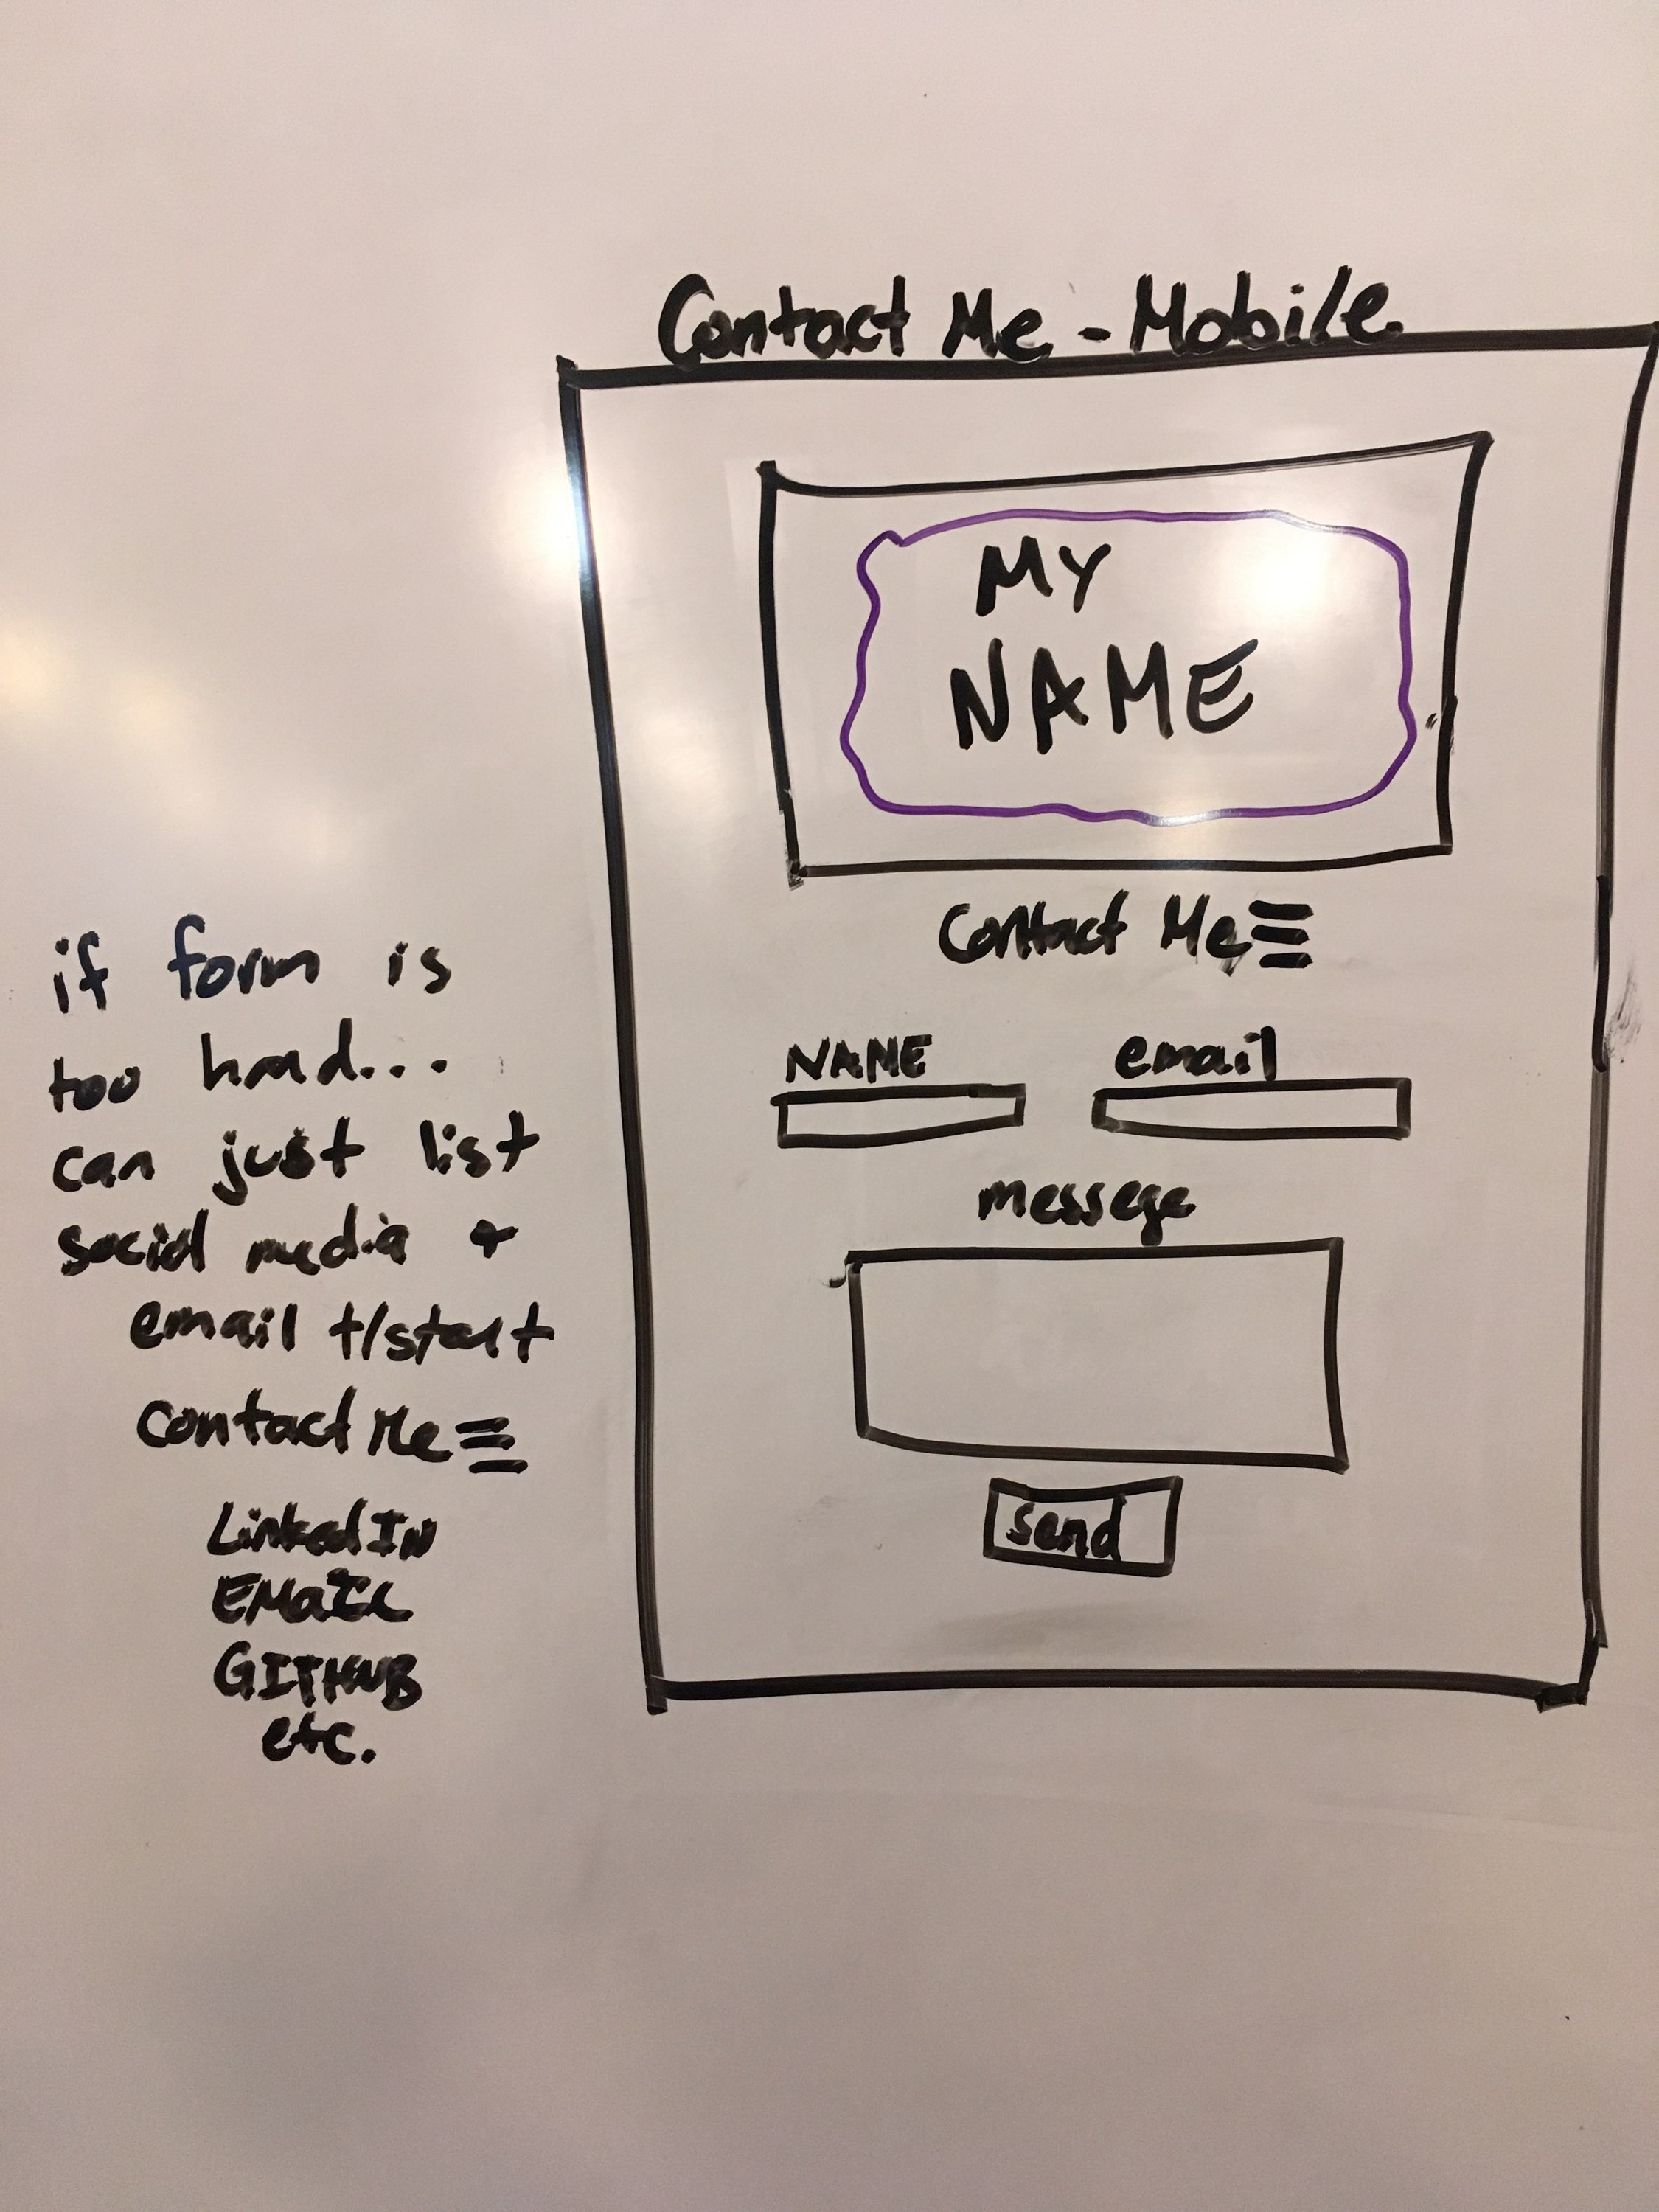 Contact Me - Mobile
MY
NAME
Contact Me
NAME
email
messege
send
if form is
too hard...
can just list
social media +
email t/start
Contact Me
LinkedIN
EMaIL
GITHUB
etc.